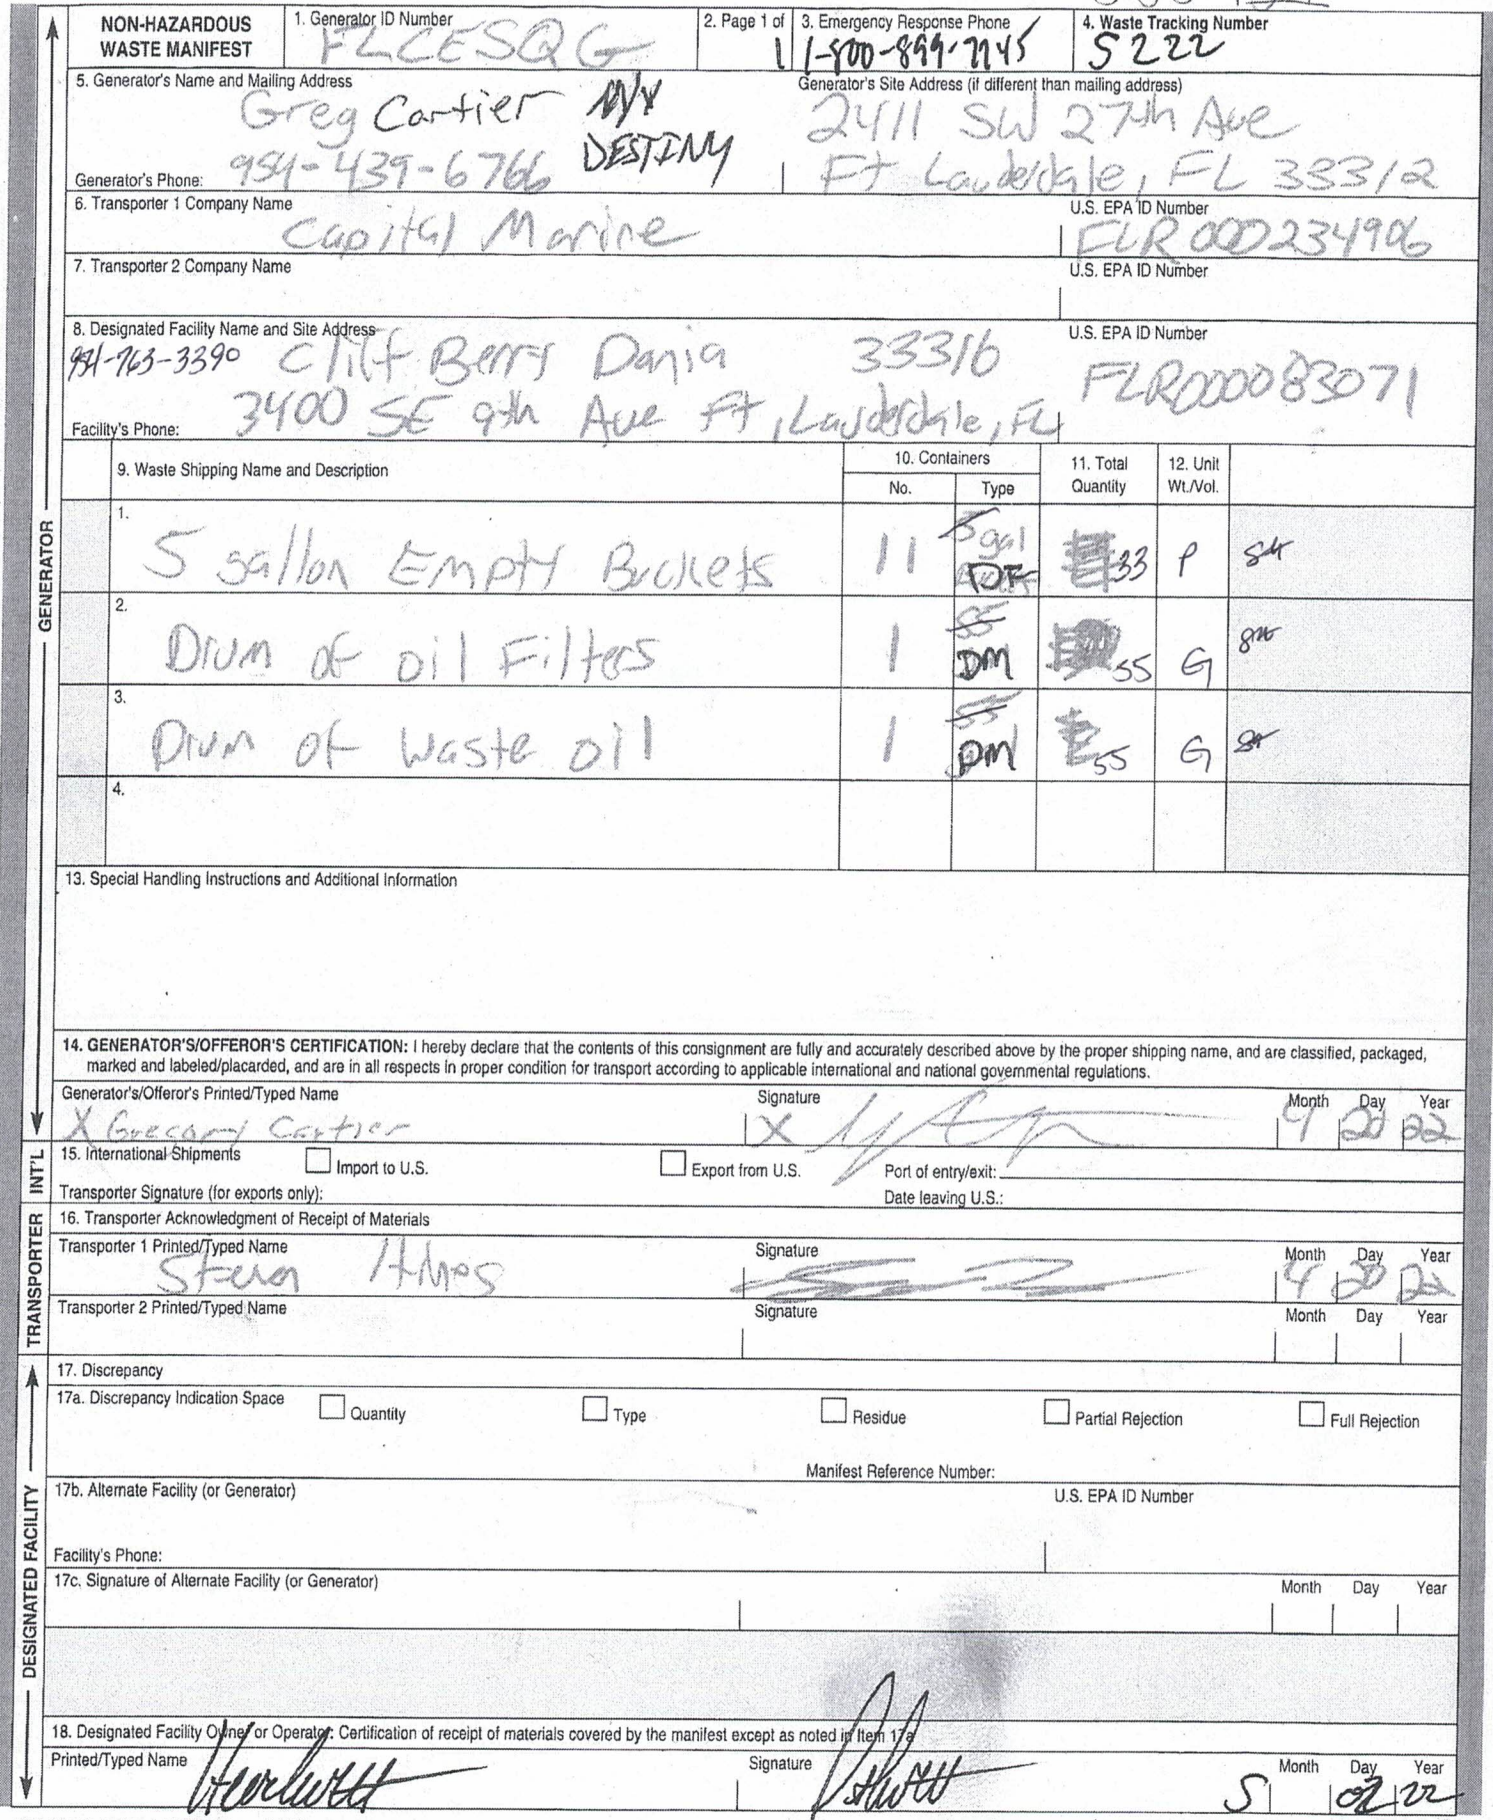 NON-HAZARDOUS WASTE MANIFEST
1. Generator ID Number
FLCESQG
2. Page 1 of
1
3. Emergency Response Phone
1-800-899-7745
4. Waste Tracking Number
5222
5. Generator's Name and Mailing Address
Greg Cartier M/Y
DESTINY
Generator's Phone: 954-439-6766
Generator's Site Address (if different than mailing address)
2411 SW 27th Ave
Ft Lauderdale, FL 33312
6. Transporter 1 Company Name
Capital Marine
U.S. EPA ID Number
FLR000234906
7. Transporter 2 Company Name
U.S. EPA ID Number
8. Designated Facility Name and Site Address
954-763-3390 Cliff Berry Dania 33316
3400 SE 9th Ave Ft, Lauderdale, FL
Facility's Phone:
U.S. EPA ID Number
FLR000083071
9. Waste Shipping Name and Description
10. Containers
No.
Type
11. Total Quantity
12. Unit Wt./Vol.
1.
5 gallon Empty Buckets 11 5 gal DF 33 P
2.
Drum of oil Filters 1 55 DM 55 G
3.
Drum of Waste oil 1 55 DM 55 G
4.
13. Special Handling Instructions and Additional Information
14. GENERATOR'S/OFFEROR'S CERTIFICATION: I hereby declare that the contents of this consignment are fully and accurately described above by the proper shipping name, and are classified, packaged,
marked and labeled/placarded, and are in all respects in proper condition for transport according to applicable international and national governmental regulations.
Generator's/Offeror's Printed/Typed Name
X Gregory Cartier
Signature
X
Month Day Year
4 20 22
15. International Shipments
Import to U.S.
Export from U.S.
Port of entry/exit:
Transporter Signature (for exports only):
Date leaving U.S.:
16. Transporter Acknowledgment of Receipt of Materials
Transporter 1 Printed/Typed Name
Signature
Month Day Year
4 20 22
Transporter 2 Printed/Typed Name
Signature
Month Day Year
17. Discrepancy
17a. Discrepancy Indication Space
Quantity
Type
Residue
Partial Rejection
Full Rejection
Manifest Reference Number:
17b. Alternate Facility (or Generator)
U.S. EPA ID Number
Facility's Phone:
17c. Signature of Alternate Facility (or Generator)
Month Day Year
18. Designated Facility Owner or Operator: Certification of receipt of materials covered by the manifest except as noted in Item 17a
Printed/Typed Name
Signature
Month Day Year
5 02 22
GENERATOR
INT'L
TRANSPORTER
DESIGNATED FACILITY